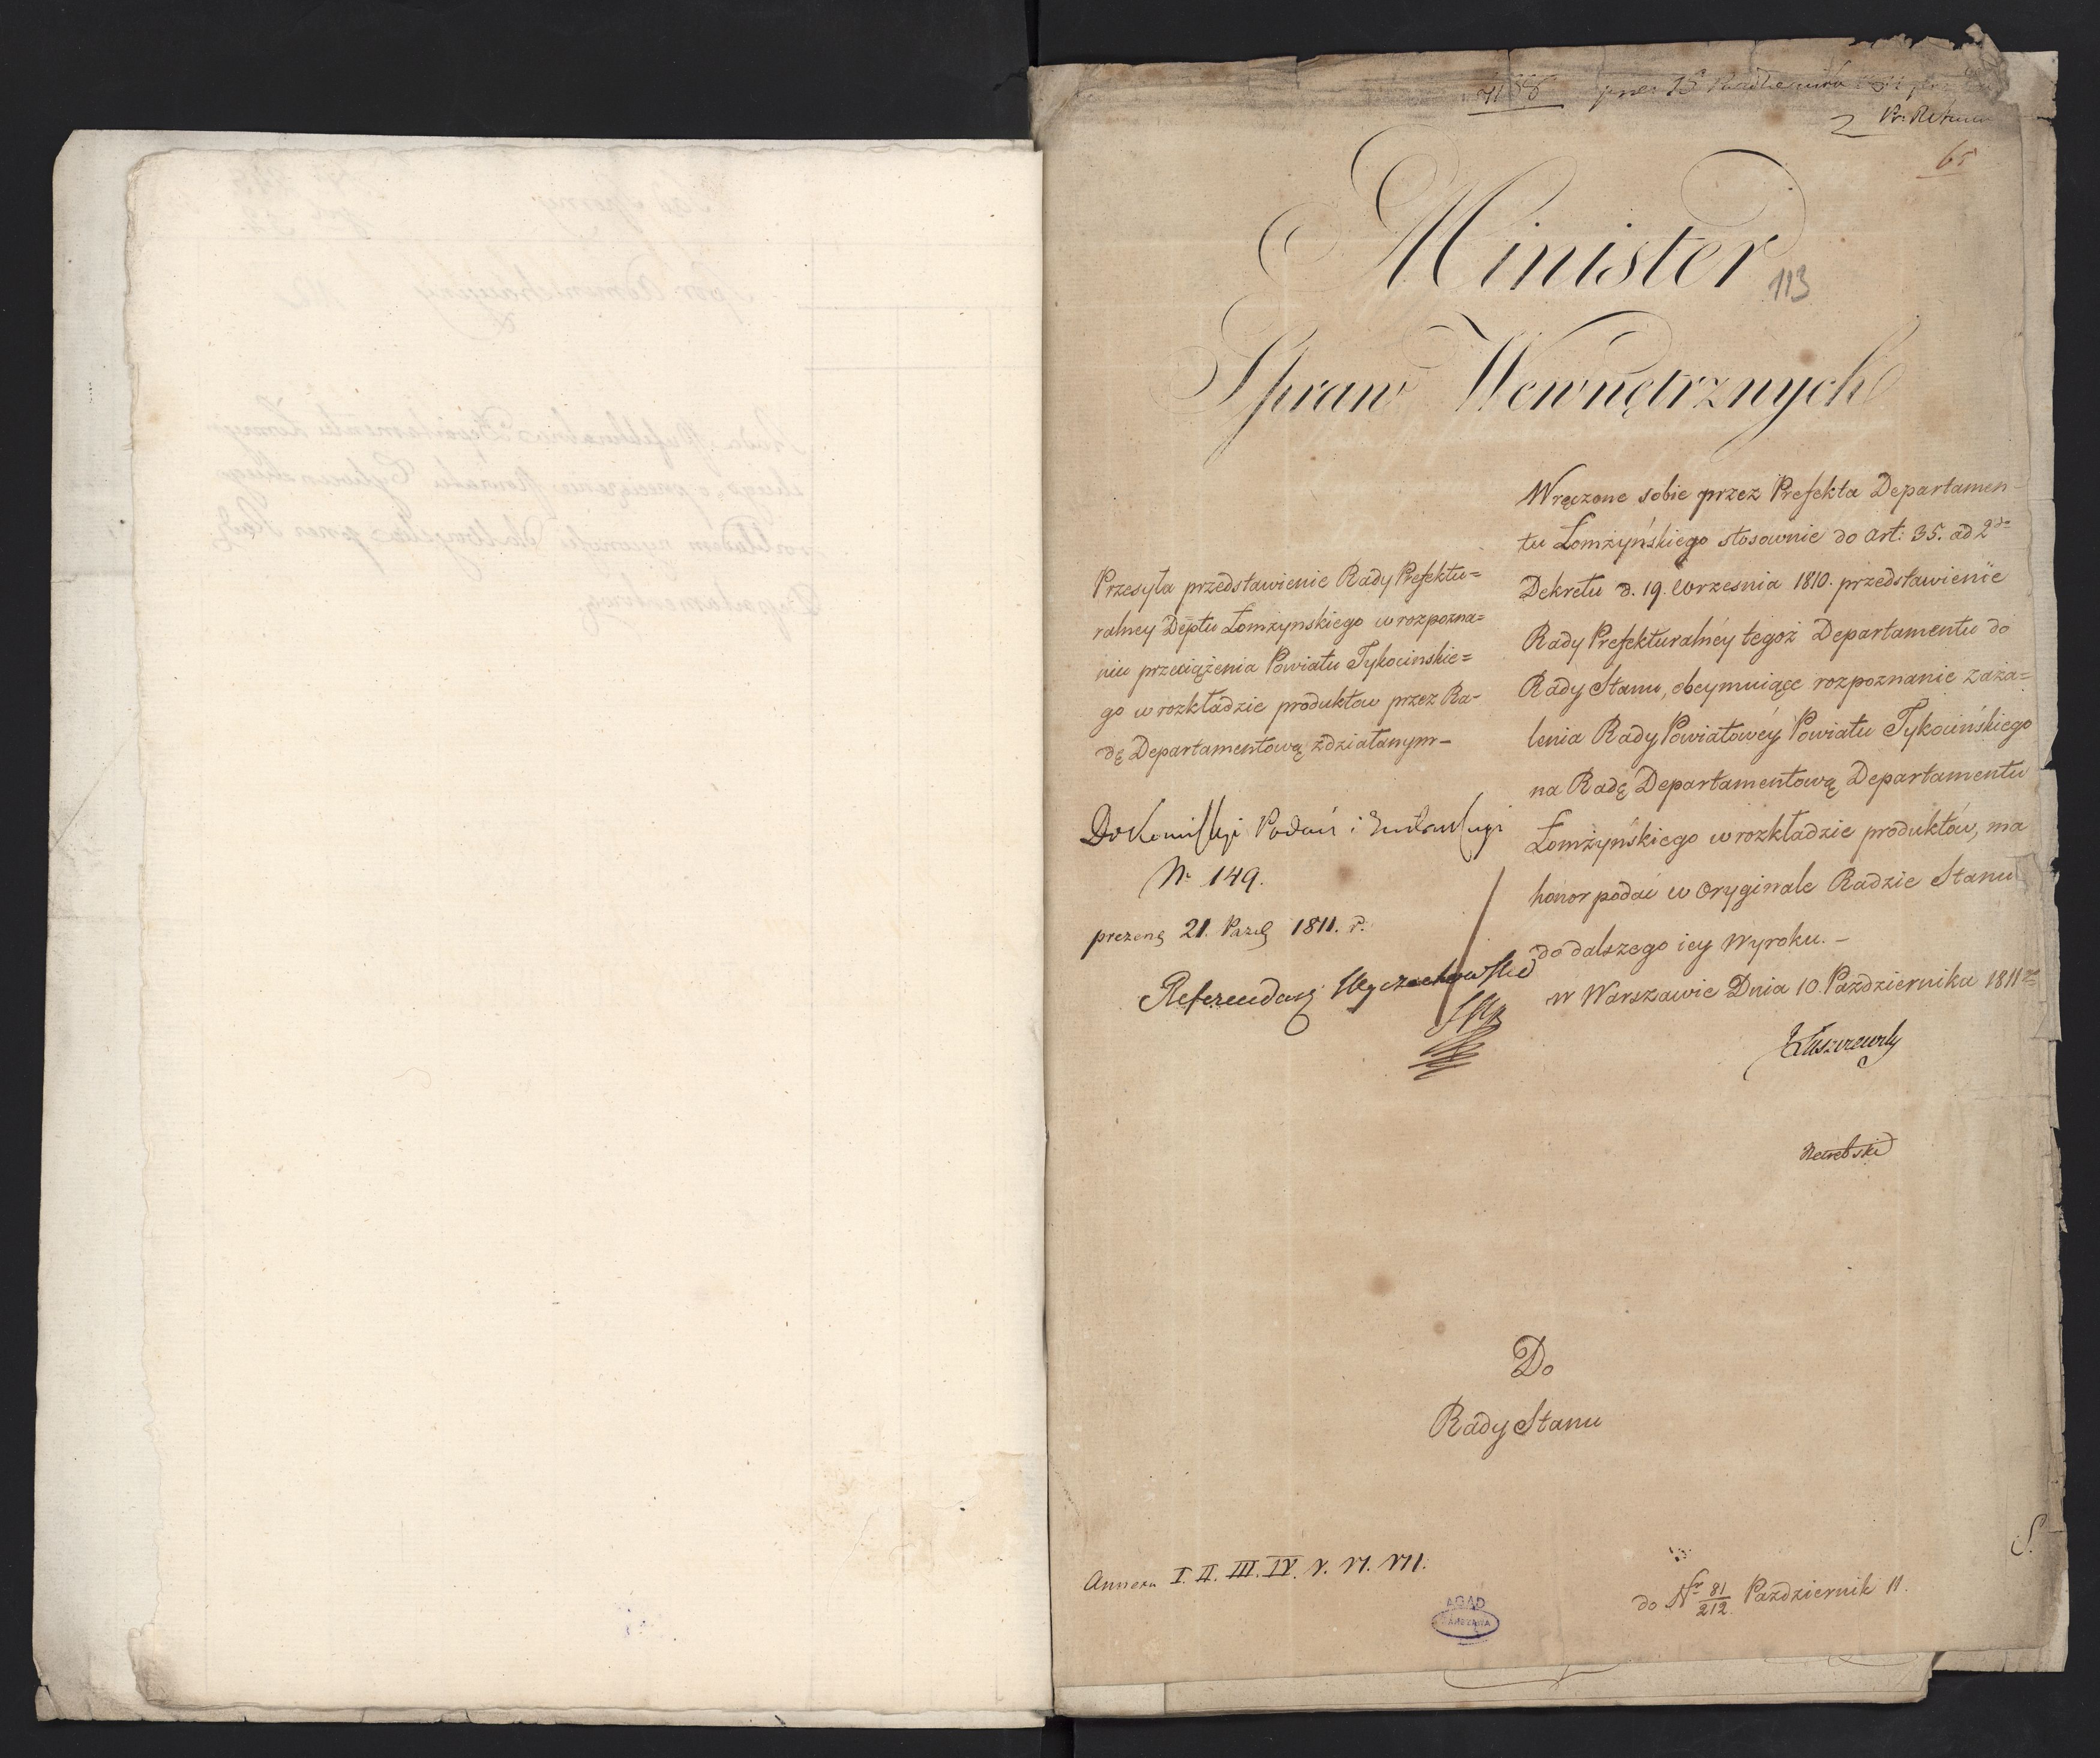 4188 prez 15 Października 1811
2
65
Minister
113
Spraw Wewnętrznych
Przesyła przedstawienie Rady Prefektu=
ralney Deptu Łomzynskiego w rozpozna=
niu przeciążenia Powiatu Tykocinskie=
go w rozkładzie produktow przez Ra-
dę Departamentową zdziałanym-
Do Komissyi Podań i Instrukcyi
Nr 149.
prezenę 21. Pazdz 1811. r.
Referendarz Wyczechowski
Wręczone sobie przez Prefekta Departamen-
tu Łomżyńskiego stosownie do art: 35. ad 2do
Dekretu d. 19. Wrzesnia 1810. przedstawienie
Rady Prefekturalnéy tegoż Departamentu do
Rady Stanu, obeymuiące rozpoznanie zaża=
lenia Rady Powiatowéy Powiatu Tykocińskiego
na Radę Departamentową Departamentu
Łomżyńskiego w rozkładzie produktów, ma
honor podać w Oryginale Radzie Stanu
do dalszego iey Wyroku. -
w Warszawie Dnia 10 Pazdziernika 1811
Do
Rady Stanu
Annexa I. II. III. IV. V. VI. VII.
AGAD
WARSZAWA
do Nr 81/212 Pazdziernik 11.
S.